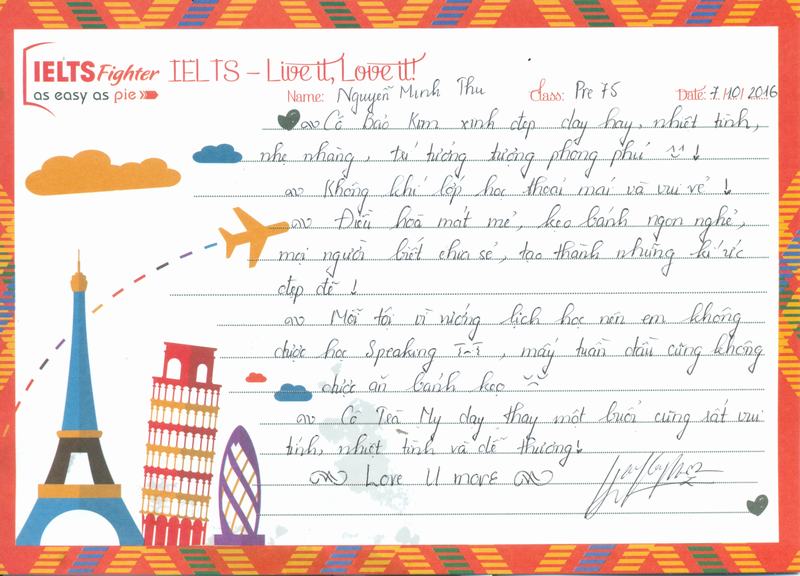 IELTS Fighter IELTS – Live it, Love it!
as easy as pie
Name: Nguyễn Minh Thu Class: Pre 75 Date: 7/10/2016
Cô Bảo Kim xinh đẹp dạy hay, nhiệt tình,
nhẹ nhàng, trí tưởng tượng phong phú ^^ !
Không khí lớp học thoải mái và vui vẻ !
Điều hoà mát mẻ, kẹo bánh ngon nghẻ,
mọi người biết chia sẻ, tạo thành những kí ức
đẹp đẽ !
Mỗi tội vì vướng lịch học nên em không
được học Speaking T-T, mấy tuần đầu cũng không
được ăn bánh kẹo
Cô Trà My dạy thay một buổi cũng rất vui
tính, nhiệt tình và dễ thương!
Love U more